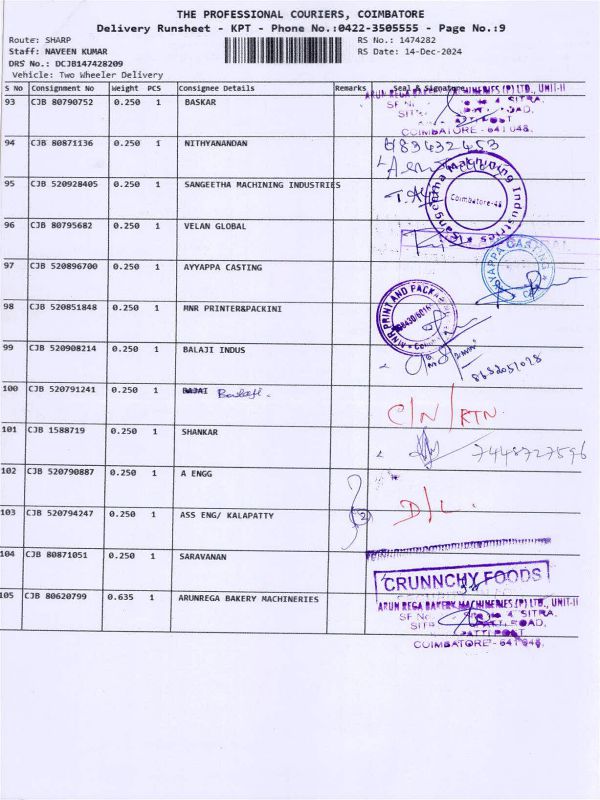 THE PROFESSIONAL COURIERS, COIMBATORE
Delivery Runsheet - KPT - Phone No.:0422-3505555 - Page No.:9
Route: SHARP RS No.: 1474282
Staff: NAVEEN KUMAR RS Date: 14-Dec-2024
DRS No.: DCJB147428209
Vehicle: Two Wheeler Delivery
S No Consignment No Weight PCS Consignee Details Remarks Seal & Signature
93 CJB 80790752 0.250 1 BASKAR
ARUN REGA BAKERY MACHINERIES (P) LTD., UNIT-II
SITRA,
ROAD,
POST
COIMBATORE - 641 048.
94 CJB 80871136 0.250 1 NITHYANANDAN
95 CJB 520928405 0.250 1 SANGEETHA MACHINING INDUSTRIES
Sangeetha Machining Industries
Coimbatore-48
96 CJB 80795682 0.250 1 VELAN GLOBAL
97 CJB 520896700 0.250 1 AYYAPPA CASTING
AYYAPPA CASTING
98 CJB 520851848 0.250 1 MNR PRINTER&PACKINI
MNR PRINT AND PACK
99 CJB 520908214 0.250 1 BALAJI INDUS
100 CJB 520791241 0.250 1 BAJAI Balaji
C/N/RTN
101 CJB 1588719 0.250 1 SHANKAR 7448727596
102 CJB 520790887 0.250 1 A ENGG
103 CJB 520794247 0.250 1 ASS ENG/ KALAPATTY 2 D/L.
104 CJB 80871051 0.250 1 SARAVANAN
CRUNNCHY FOODS
105 CJB 80620799 0.635 1 ARUNREGA BAKERY MACHINERIES
ARUN REGA BAKERY MACHINERIES (P) LTD., UNIT-II
SF No 4 SITRA,
SITR ROAD,
PATTI POST
COIMBATORE - 641 048.